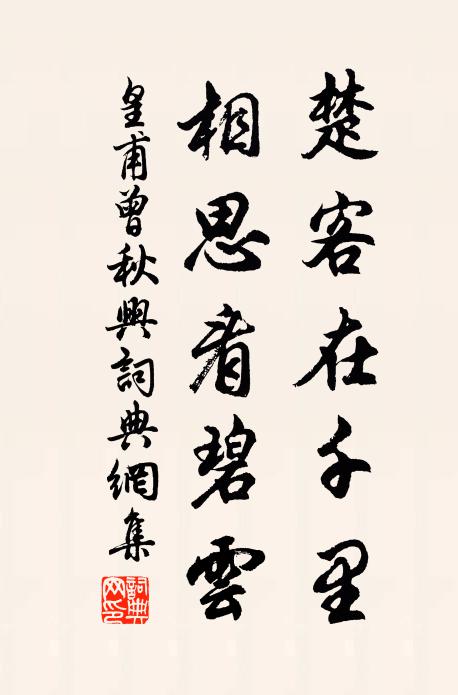 楚客在千里
相思看碧雲
皇甫曾秋興詞典網集
詞典网印